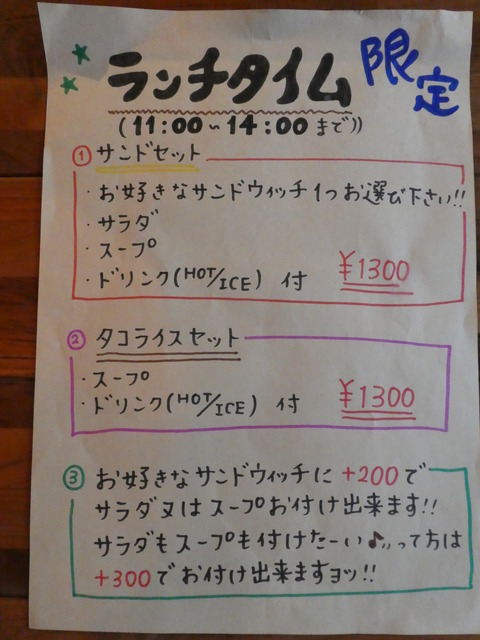 ランチタイム 限定
(11:00~14:00まで))
① サンドセット
・お好きなサンドウィッチ1つお選び下さい!!
・サラダ
・スープ
・ドリンク(HOT/ICE) 付 ¥1300
② タコライスセット
・スープ
・ドリンク(HOT/ICE) 付 ¥1300
③ お好きなサンドウィッチに +200で
サラダ又はスープお付け出来ます!!
サラダもスープも付けたーい♪〃って方は
+300でお付け出来ますョッ!!